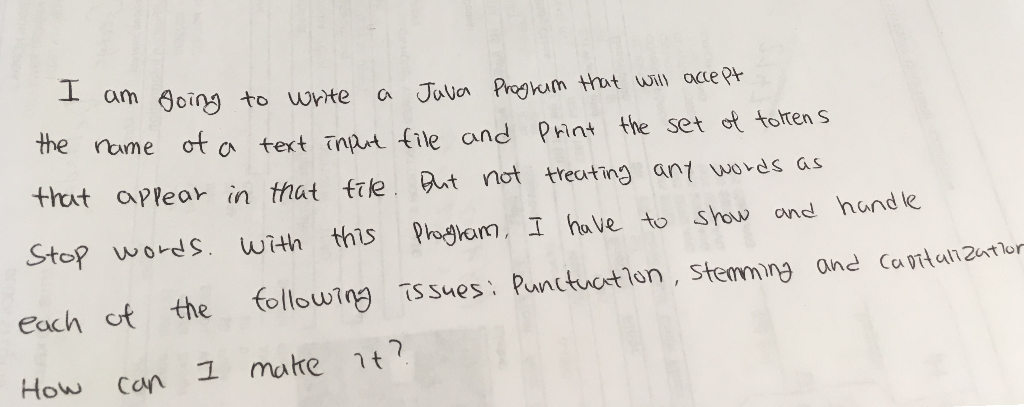 I am going to write a Java Program that will accept
the name of a text input file and Print the set of tokens
that appear in that file. But not treating any words as
Stop words. With this Program, I have to show and handle
each of the following issues: Punctuation, stemming and capitalization
How can I make it?